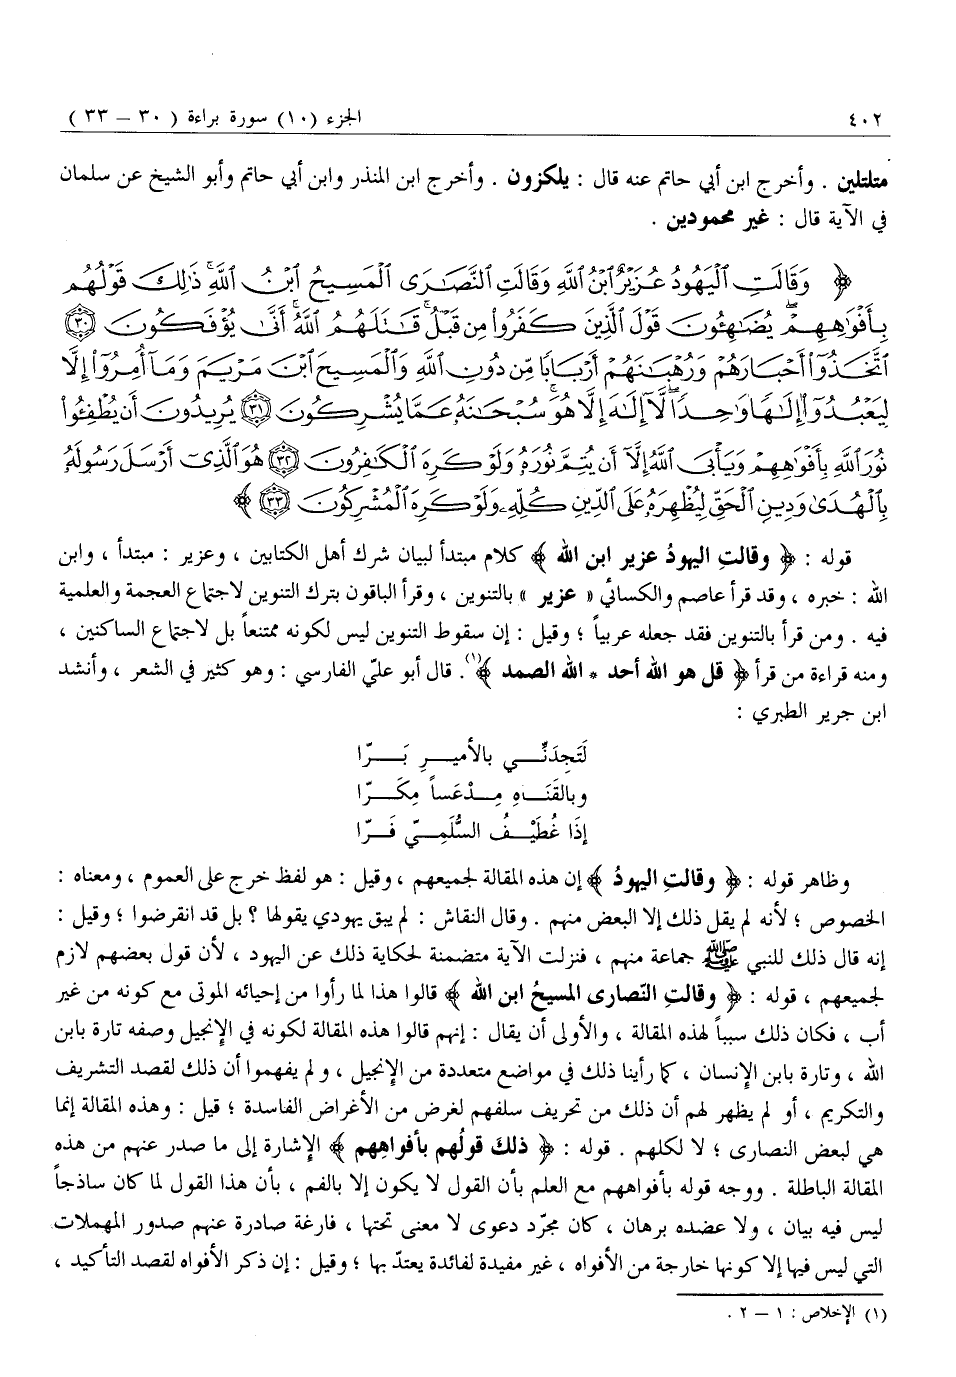 ٤٠٢ الجزء (١٠) سورة براءة ( ٣٠ – ٣٣ )
متلتلين . وأخرج ابن أبي حاتم عنه قال : يلكزون . وأخرج ابن المنذر وابن أبي حاتم وأبو الشيخ عن سلمان
في الآية قال : غير محمودين .
﴿ وَقَالَتِ ٱلْيَهُودُ عُزَيْرٌ ٱبْنُ ٱللَّهِ وَقَالَتِ ٱلنَّصَٰرَى ٱلْمَسِيحُ ٱبْنُ ٱللَّهِ ۖ ذَٰلِكَ قَوْلُهُم
بِأَفْوَٰهِهِمْ ۖ يُضَٰهِـُٔونَ قَوْلَ ٱلَّذِينَ كَفَرُوا۟ مِن قَبْلُ ۚ قَٰتَلَهُمُ ٱللَّهُ ۚ أَنَّىٰ يُؤْفَكُونَ ٣٠
ٱتَّخَذُوٓا۟ أَحْبَارَهُمْ وَرُهْبَٰنَهُمْ أَرْبَابًا مِّن دُونِ ٱللَّهِ وَٱلْمَسِيحَ ٱبْنَ مَرْيَمَ وَمَآ أُمِرُوٓا۟ إِلَّا
لِيَعْبُدُوٓا۟ إِلَٰهًا وَٰحِدًا ۖ لَّآ إِلَٰهَ إِلَّا هُوَ ۚ سُبْحَٰنَهُۥ عَمَّا يُشْرِكُونَ ٣١ يُرِيدُونَ أَن يُطْفِـُٔوا۟
نُورَ ٱللَّهِ بِأَفْوَٰهِهِمْ وَيَأْبَى ٱللَّهُ إِلَّآ أَن يُتِمَّ نُورَهُۥ وَلَوْ كَرِهَ ٱلْكَٰفِرُونَ ٣٢ هُوَ ٱلَّذِىٓ أَرْسَلَ رَسُولَهُۥ
بِٱلْهُدَىٰ وَدِينِ ٱلْحَقِّ لِيُظْهِرَهُۥ عَلَى ٱلدِّينِ كُلِّهِۦ وَلَوْ كَرِهَ ٱلْمُشْرِكُونَ ٣٣ ﴾
قوله : ﴿ وقالتِ اليهودُ عزير ابن الله ﴾ كلام مبتدأ لبيان شرك أهل الكتابين ، وعزير : مبتدأ ، وابن
الله : خبره ، وقد قرأ عاصم والكسائي « عزير » بالتنوين ، وقرأ الباقون بترك التنوين لاجتماع العجمة والعلمية
فيه . ومن قرأ بالتنوين فقد جعله عربياً ؛ وقيل : إن سقوط التنوين ليس لكونه ممتنعاً بل لاجتماع الساكنين ،
ومنه قراءة من قرأ ﴿ قل هو الله أحد * الله الصمد ﴾(١). قال أبو عليّ الفارسي : وهو كثير في الشعر ، وأنشد
ابن جرير الطبري :
لَتَجِدَنِّي بالأميرِ بَرّا
وبالقَنَاهِ مِدْعَساً مِكَرّا
إذَا غُطَيْفُ السُّلَمِيّ فَرّا
وظاهر قوله : ﴿ وقالتِ اليهودُ ﴾ إن هذه المقالة لجميعهم ، وقيل : هو لفظ خرج على العموم ، ومعناه :
الخصوص ؛ لأنه لم يقل ذلك إلا البعض منهم . وقال النقاش : لم يبق يهودي يقولها ؟ بل قد انقرضوا ؛ وقيل :
إنه قال ذلك للنبي ﷺ جماعة منهم ، فنزلت الآية متضمنة لحكاية ذلك عن اليهود ، لأن قول بعضهم لازم
لجميعهم ، قوله : ﴿ وقالتِ النّصارى المسيحُ ابن الله ﴾ قالوا هذا لما رأوا من إحيائه الموتى مع كونه من غير
أب ، فكان ذلك سبباً لهذه المقالة ، والأولى أن يقال : إنهم قالوا هذه المقالة لكونه في الإنجيل وصفه تارة بابن
الله ، وتارة بابن الإنسان ، كما رأينا ذلك في مواضع متعددة من الإنجيل ، ولم يفهموا أن ذلك لقصد التشريف
والتكريم ، أو لم يظهر لهم أن ذلك من تحريف سلفهم لغرض من الأغراض الفاسدة ؛ قيل : وهذه المقالة إنما
هي لبعض النصارى ؛ لا لكلهم . قوله : ﴿ ذلكَ قولُهم بأفواهِهم ﴾ الإشارة إلى ما صدر عنهم من هذه
المقالة الباطلة . ووجه قوله بأفواههم مع العلم بأن القول لا يكون إلا بالفم ، بأن هذا القول لما كان ساذجاً
ليس فيه بيان ، ولا عضده برهان ، كان مجرّد دعوى لا معنى تحتها ، فارغة صادرة عنهم صدور المهملات
التي ليس فيها إلا كونها خارجة من الأفواه ، غير مفيدة لفائدة يعتدّ بها ؛ وقيل : إن ذكر الأفواه لقصد التأكيد ،
(١) الإخلاص : ١ – ٢ .